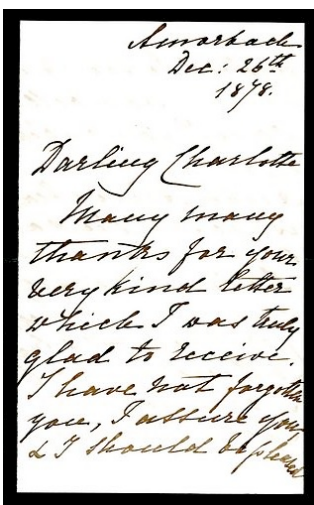 Amorbach
Dec: 26th
1878.
Darling Charlotte
Many many
thanks for your
very kind letter
which I was truly
glad to receive.
I have not forgotten
you, I assure you
& I should be pleased